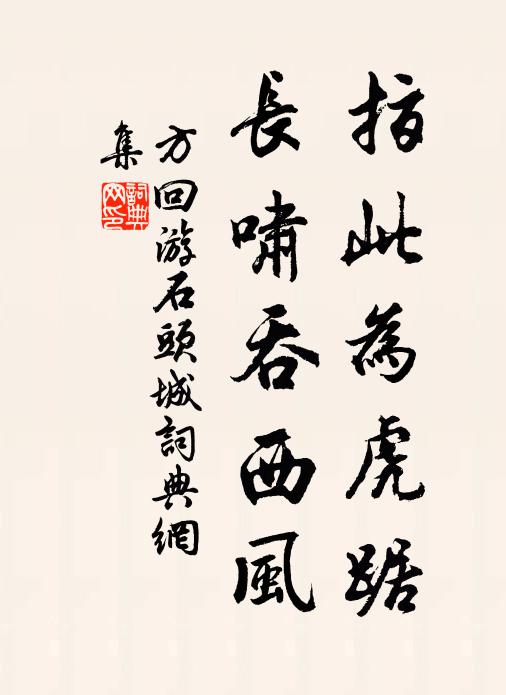 指此為虎踞
長嘯吞西風
方回游石頭城詞典網
集
詞典
网印